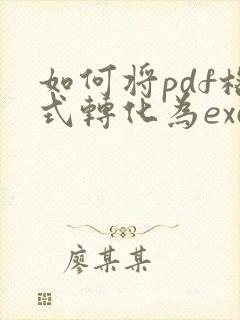 如何將pdf格
式轉化為exc
廖某某